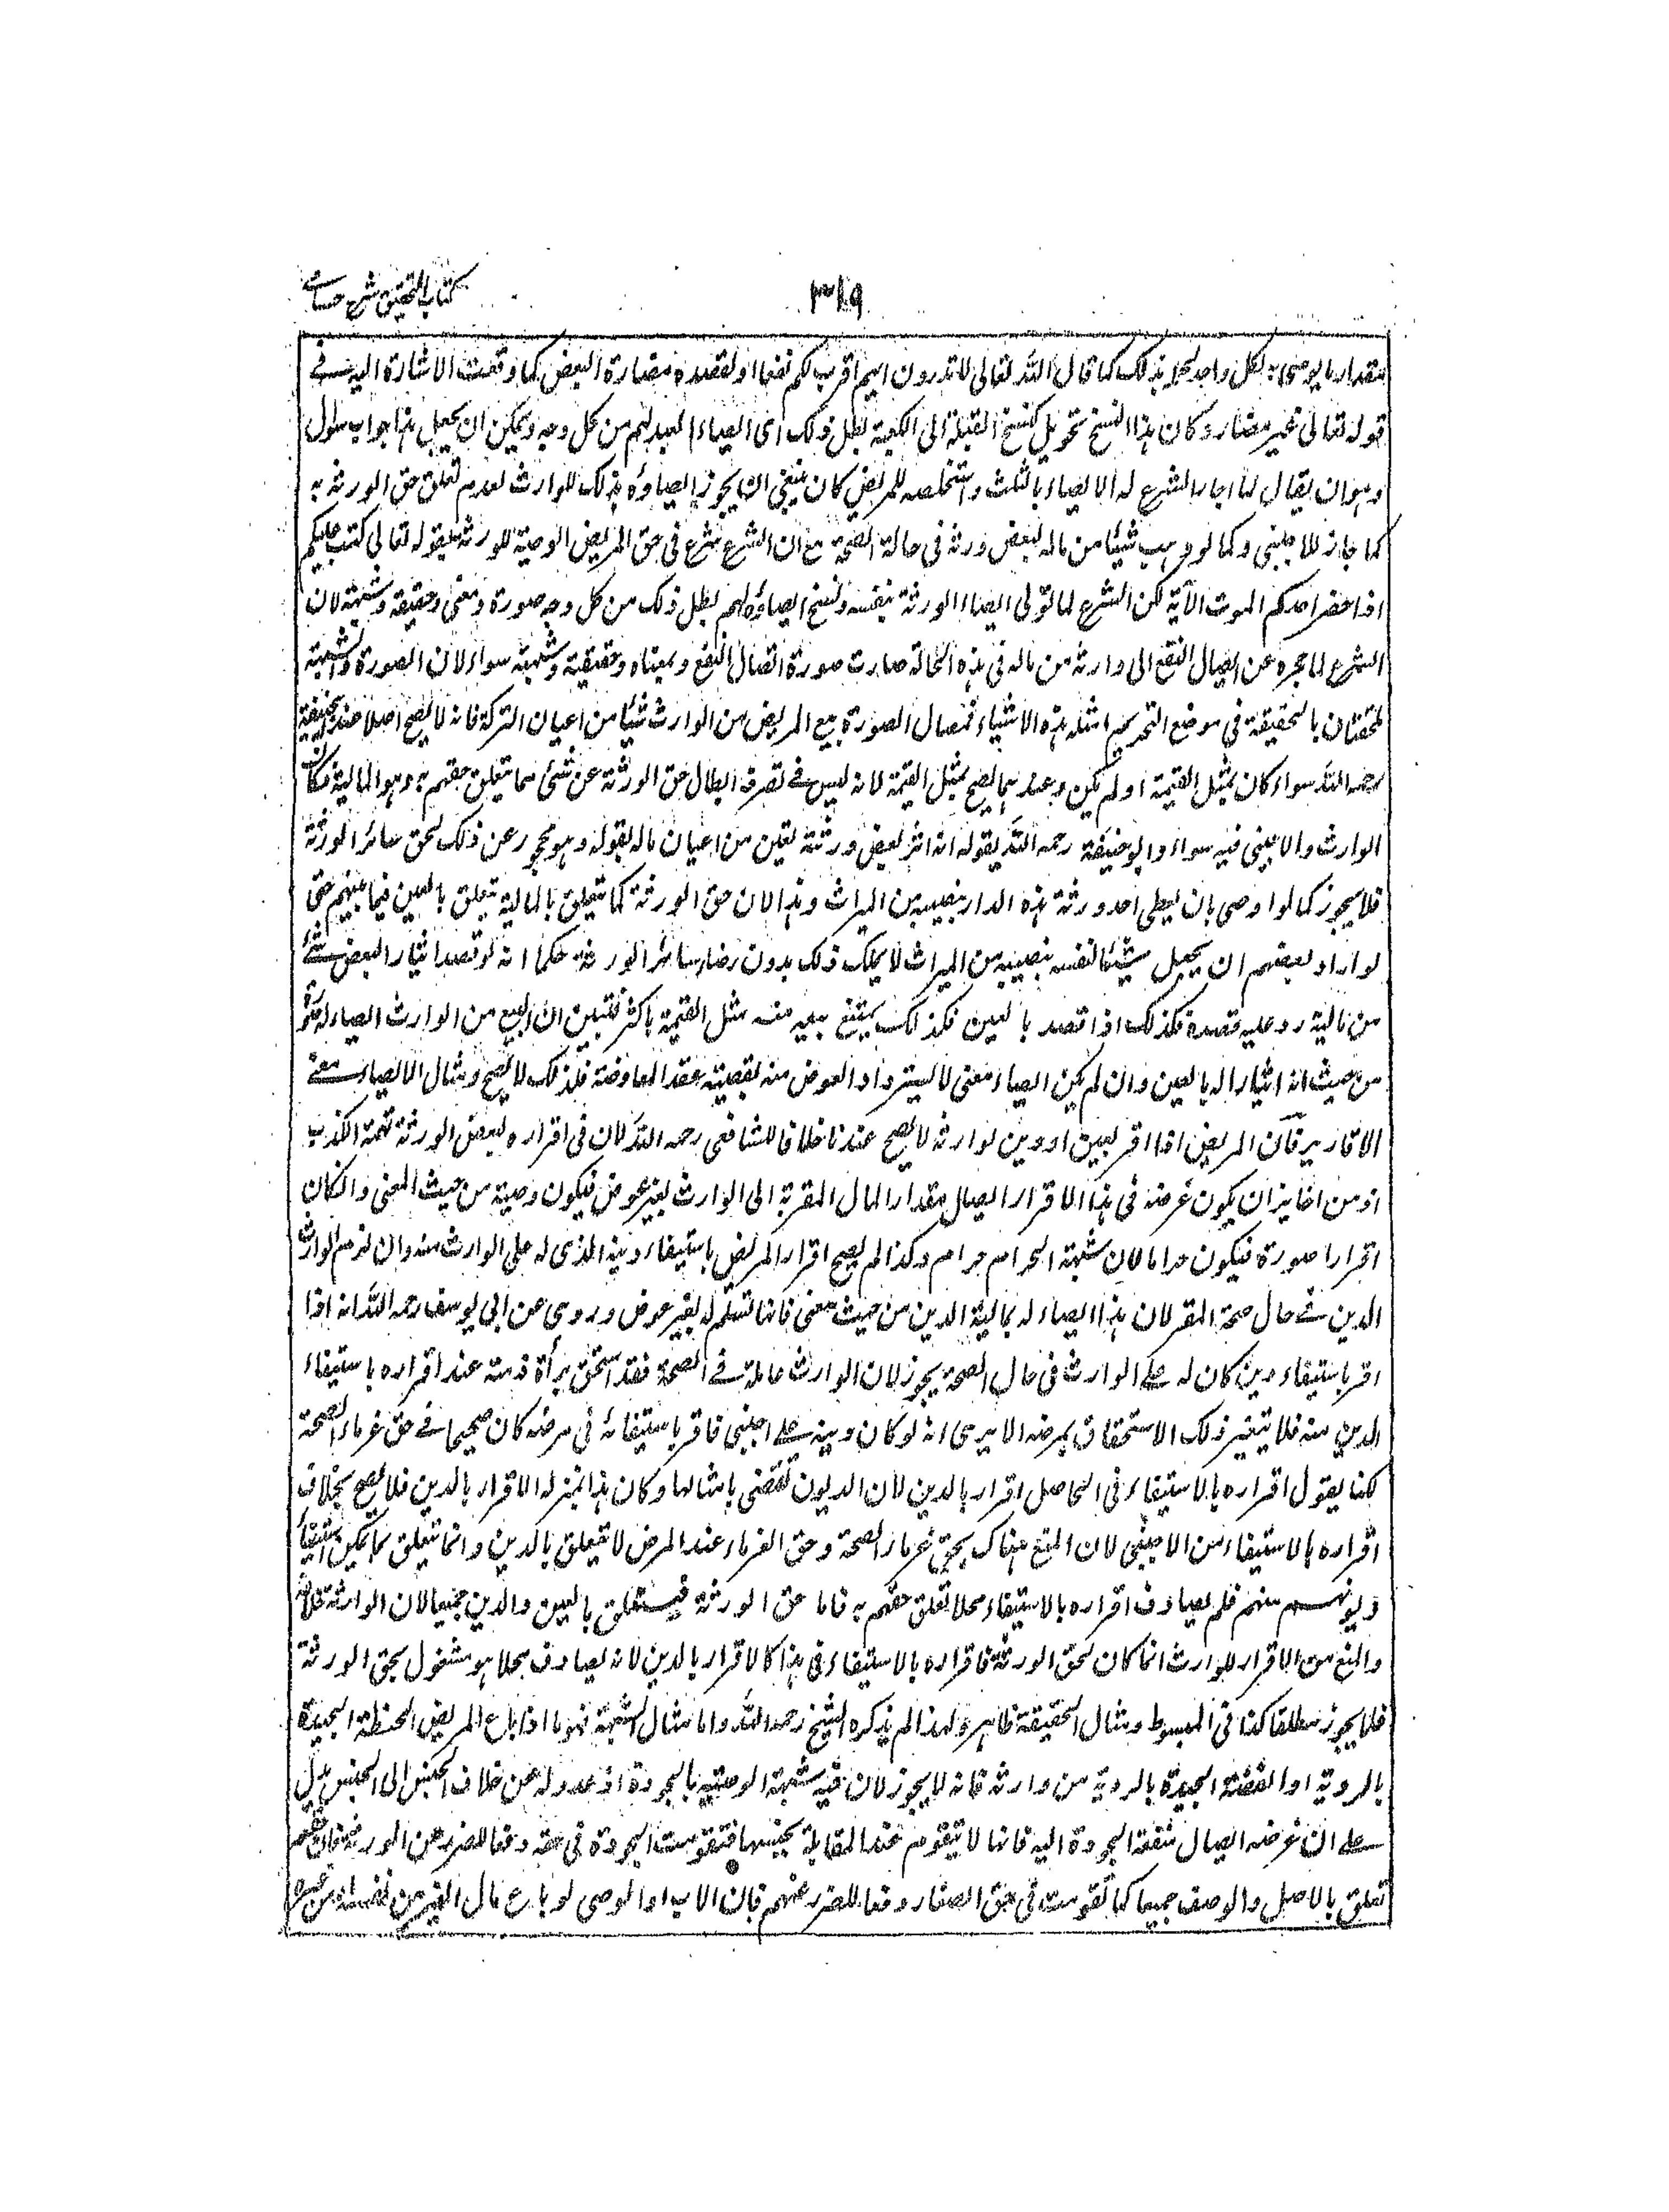 كتاب التحقيق شرح حسامى
٣١٩
بمقدار ما يوصى به لكل واحد لجهله بذلك كما قال الله تعالى لا تدرون ايهم اقرب لكم نفعا او لقصده مضارة البعض كما وقعت الاشارة اليه فى
قوله تعالى غير مضار وكان هذا النسخ تحويل كنسخ القبلة الى الكعبة بطل ذلك اى ايصاء العبد لهم من كل وجه ويمكن ان يجعل هذا جواب سوال
وهو ان يقال لما اجاز الشرع له الايصاء بالثلث واستخلصه للمريض كان ينبغى ان يجوز ايصاؤه بذلك للوارث لعدم تعلق حق الورثة به
كما جاز للاجنبى وكما لو وهب شيئا من ماله لبعض ورثته فى حالة الصحة مع ان الشرع شرع فى حق المريض الوصية للورثة بقوله تعالى كتب عليكم
اذا حضر احدكم الموت الآية لكن الشرع لما تولى ايصاء الورثة بنفسه ونسخ ايصاؤه لهم بطل ذلك من كل وجه صورة ومعنى وحقيقة وشبهة لان
الشرع لما حجره عن ايصال النفع الى وارثه من ماله فى هذه الحالة صارت صورة ايصال النفع ومعناه وحقيقته وشبهته سواء لان الصورة والشبهة
ملحقتان بالحقيقة فى موضع التحريم امثلة هذه الاشياء فمثال الصورة بيع المريض من الوارث شيئا من اعيان التركة فانه لا يصح اصلا عند ابى حنيفة
رحمه الله سواء كان بمثل القيمة او لم يكن وعندهما يصح بمثل القيمة لانه ليس فى تصرفه ابطال حق الورثة عن شئ مما يتعلق حقهم به وهو المالية فكان
الوارث والاجنبى فيه سواء وابو حنيفة رحمه الله يقول انه اثر بعض ورثته بعين من اعيان ماله بقوله وهو محجور عن ذلك لحق سائر الورثة
فلا يجوز كما لو اوصى بان يعطى احد ورثته هذه الدار بنصيبه من الميراث وهذا لان حق الورثة كما يتعلق بالمالية يتعلق بالعين فيما بينهم حتى
لو اراد بعضهم ان يجعل شيئا لنفسه بنصيبه من الميراث لا يملك ذلك بدون رضاء سائر الورثة فكما انه لو قصد ايثار البعض بشئ
من ماليته رد عليه قصده فكذلك اذا قصد بالعين فكذلك يمتنع بيعه منه بمثل القيمة باكثر فتبين ان البيع من الوارث ايصاء له صورة
من حيث انه ايثار له بالعين وان لم يكن ايصاء معنى لاسترداد العوض منه بقضية عقد المعاوضة فلذلك لا يصح ومثال الايصاء معنى
الاقارير فان المريض اذا اقر بعين او دين لوارثه لا يصح عندنا خلافا للشافعى رحمه الله لان فى اقراره لبعض الورثة تهمة الكذب
اذ من الجائز ان يكون غرضه فى هذا الاقرار ايصال مقدار المال المقر به الى الوارث بغير عوض فيكون وصية من حيث المعنى وان كان
اقرارا صورة فيكون حراما لان شبهة الحرام حرام وكذا لم يصح اقرار المريض باستيفاء دينه الذى له على الوارث منه وان لزم الوارث
الدين فى حال صحة المقر لان هذا ايصاء له بمالية الدين من حيث معنى فانها تسلم له بغير عوض وروى عن ابى يوسف رحمه الله انه اذا
اقر باستيفاء دين كان له على الوارث فى حال الصحة يجوز لان الوارث عامله فى الصحة فقد استحق برأة ذمته عند اقراره باستيفاء
الدين منه فلا يتغير ذلك الاستحقاق بمرضه الا يرى انه لو كان دينه على اجنبى فاقر باستيفائه فى مرضه كان صحيحا فى حق غرماء الصحة
لكنا نقول اقراره بالاستيفاء فى الحاصل اقرار بالدين لان الديون تقضى بامثالها وكان هذا بمنزلة الاقرار بالدين فلا يصح بخلاف
اقراره بالاستيفاء من الاجنبى لان المنع هناك لحق غرماء الصحة وحق الغرماء عند المرض لا يتعلق بالدين وانما يتعلق بما يمكن استيفاء
ديونهم منهم فلم يصادف اقراره بالاستيفاء محلا تعلق حقهم به فاما حق الورثة فيتعلق بالعين والدين جميعا لان الوارثة خلافة
والمنع من الاقرار للوارث انما كان لحق الورثة فاقراره بالاستيفاء فى هذا كالاقرار بالدين لانه يصادف محلا هو مشغول بحق الورثة
فلا يجوز مطلقا كذا فى المبسوط ومثال الحقيقة ظاهر ولهذا لم يذكره الشيخ رحمه الله واما مثال الشبهة فهو ما اذا باع المريض الحنطة الجيدة
بالردية او الفضة الجيدة بالردية من وارثه فانه لا يجوز لان فيه شبهة الوصية بالجودة اذ عدوله عن خلاف الجنس الى الجنس يدل
على ان غرضه ايصال منفعة الجودة اليه فانها لا تتقوم عند المقابلة بجنسها فتقومت الجودة فى حقه دفعا للضرر عن الورثة فان حقهم
تعلق بالاصل والوصف جميعا كما تقومت فى حق الصغار دفعا للضرر عنهم فان الاب او الوصى لو باع مال الصغير من نفسه او من غيره